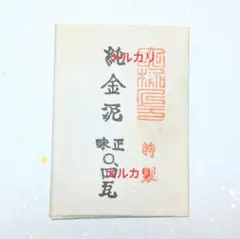 特製
純金泥
正味
〇、四瓦
メルカリ
メルカリ